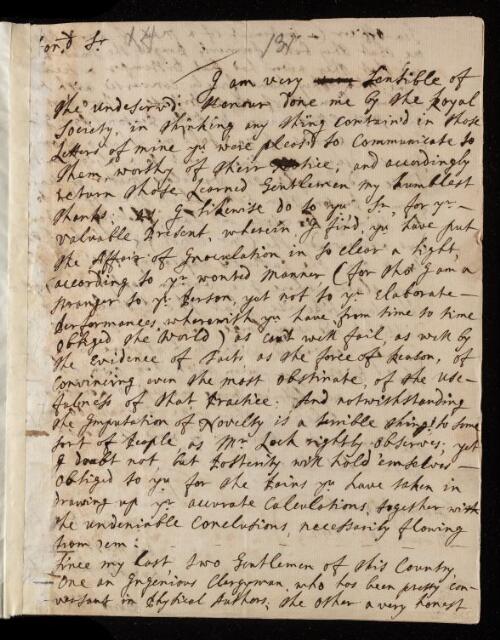 on.d Sr 131
I am very Sensible of
the undeserv'd Honour done me by the Royal
Society, in thinking any thing contain'd in those
Letters of mine yu were pleas'd to Communicate to
them, worthy of their Notice; and accordingly
return those Learned Gentlemen my humblest
thanks: as I likewise do to yu Sr. for yr—
valuable Present, wherein I find, yu have put
the Affair of Inoculation in so clear a light,
according to yr wonted manner (for tho' I am a
stranger to yr Person, yet not to yr Elaborate—
Performances, wherewith yu have from time to time
oblig'd the World) as can't well fail, as well by
the Evidence of Facts as the force of Reason, of
convincing even the most obstinate, of the use-
fulness of that Practice: And notwithstanding
the Imputation of Novelty is a terrible thing to some
sort of People as Mr. Lock rightly observes; yet
I doubt not but Posterity will hold 'emselves—
obliged to yu for the Pains yu have taken in
drawing up yr accurate Calculations, together with
the undeniable Conclusions, necessarily flowing
from 'em.
Since my last, two Gentlemen of this Country,
One an Ingenious Clergyman, who has been pretty con-
versant in Physical Authors; the other a very honest